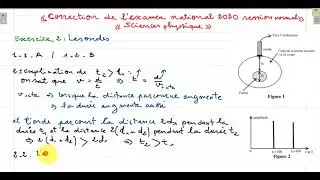 « Correction de l'examen national 2020 session normale »
« Sciences physique »
Exercice 2: les ondes
1-1. A / 1-2. B
2: explication de t₂ > t₁:
on sait que v = d/t ⇒ t = d/v
v: cte → lorsque la distance parcourue augmente
⇒ la durée augmente aussi
et l'onde parcourt la distance 2d₁ pendant la
durée t₁ et la distance 2(d₁+d₂) pendant la durée t₂
⇒ 2(d₁+d₂) > 2d₁ ⇒ t₂ > t₁
2.2.
Figure 1
Figure 2